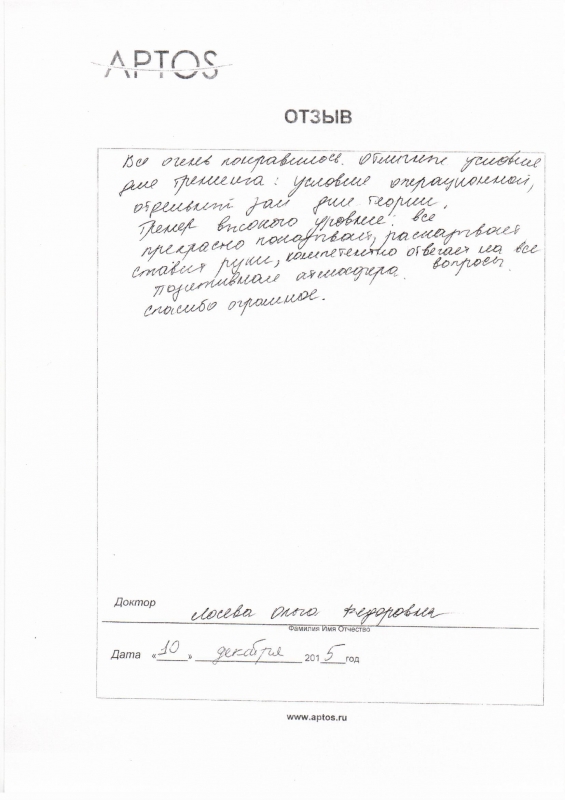 APTOS
ОТЗЫВ
Все очень понравилось. Отличные условия
для тренинга: условия операционной,
отдельный зал для теории.
Тренер высокого уровня: все
прекрасно показывает, рассказывает
ставит руки, компетентно отвечает на все
вопросы.
Позитивная атмосфера.
Спасибо огромное.
Доктор Лосева Ольга Федоровна
Фамилия Имя Отчество
Дата «10» декабря 2015 год
www.aptos.ru